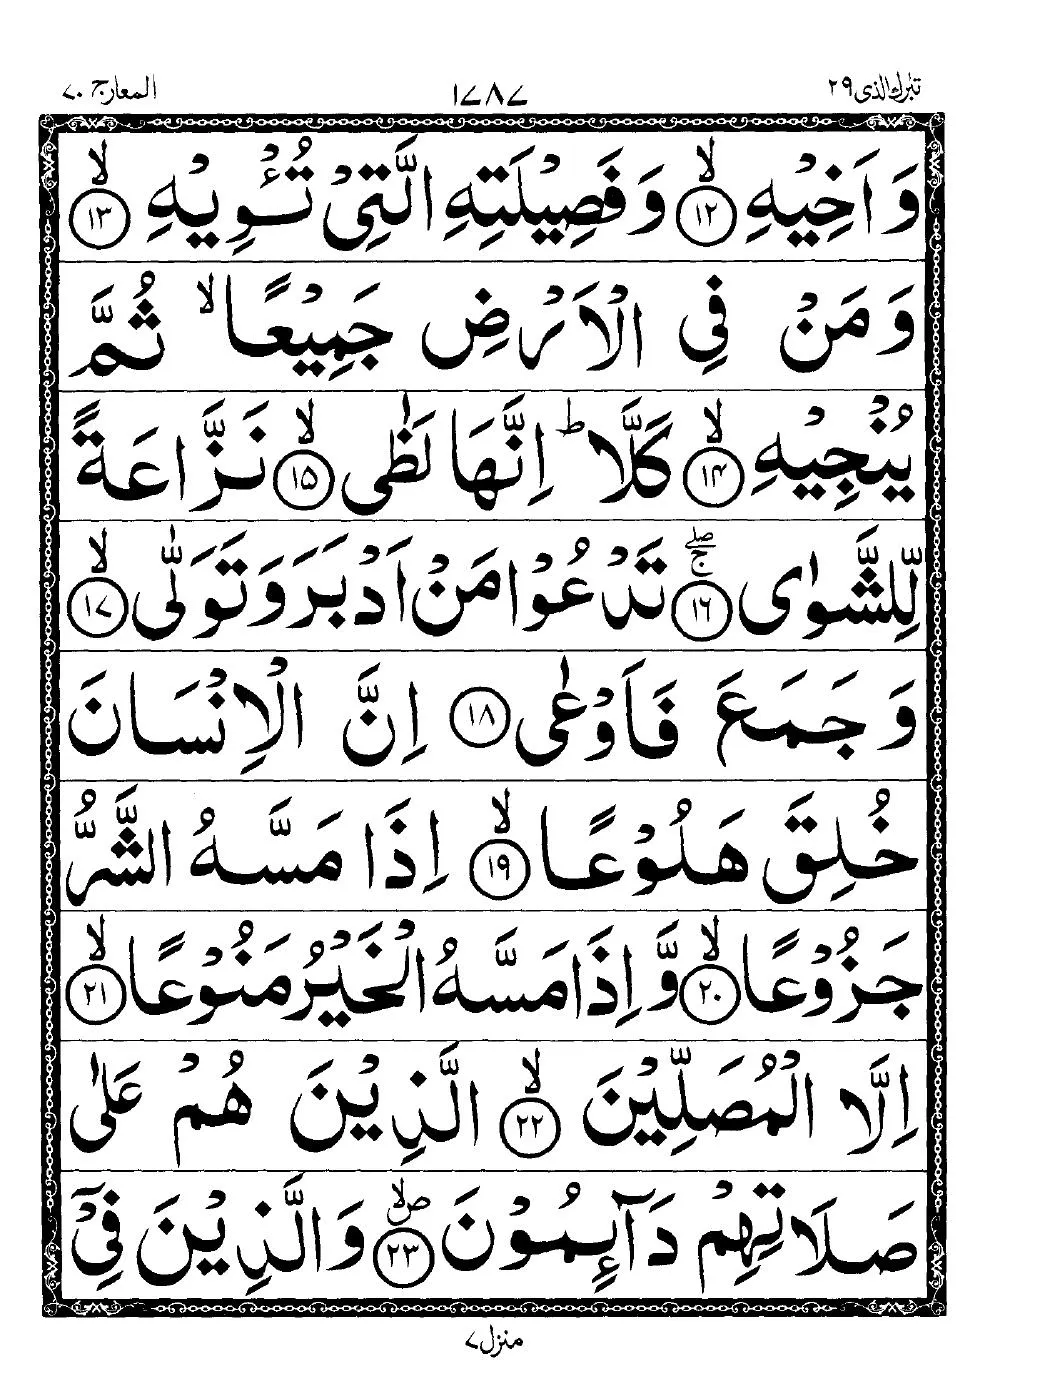 تبٰرك الذی ۲۹ ۱۷۸۷ المعارج ۷۰
وَ اَخِیْهِ ﴿ۙ۱۲﴾ وَ فَصِیْلَتِهِ الَّتِیْ تُــْٔوِیْهِ ﴿ۙ۱۳﴾
وَ مَنْ فِی الْاَرْضِ جَمِیْعًا ۙ ثُمَّ
یُنْجِیْهِ ﴿ۙ۱۴﴾ كَلَّا ؕ اِنَّهَا لَظٰی ﴿ۙ۱۵﴾ نَزَّاعَةً
لِّلشَّوٰی ﴿ۚۖ۱۶﴾ تَدْعُوْا مَنْ اَدْبَرَ وَ تَوَلّٰی ﴿ۙ۱۷﴾
وَ جَمَعَ فَاَوْعٰی ﴿۱۸﴾ اِنَّ الْاِنْسَانَ
خُلِقَ هَلُوْعًا ﴿ۙ۱۹﴾ اِذَا مَسَّهُ الشَّرُّ
جَزُوْعًا ﴿ۙ۲۰﴾ وَّ اِذَا مَسَّهُ الْخَیْرُ مَنُوْعًا ﴿ۙ۲۱﴾
اِلَّا الْمُصَلِّیْنَ ﴿ۙ۲۲﴾ الَّذِیْنَ هُمْ عَلٰی
صَلَاتِهِمْ دَآىِٕمُوْنَ ﴿۪ۙ۲۳﴾ وَ الَّذِیْنَ فِیْۤ
منزل ۷